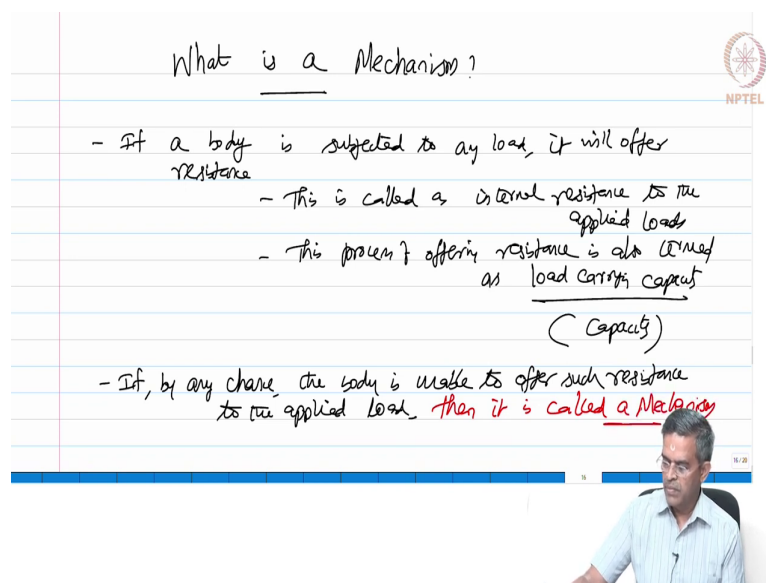 What is a Mechanism?
NPTEL
- If a body is subjected to any load, it will offer
resistance
- This is called as internal resistance to the
applied loads
- This process of offering resistance is also termed
as load carrying capacity
(Capacity)
- If, by any chance, the body is unable to offer such resistance
to the applied load, then it is called a Mechanism
16 / 20
16